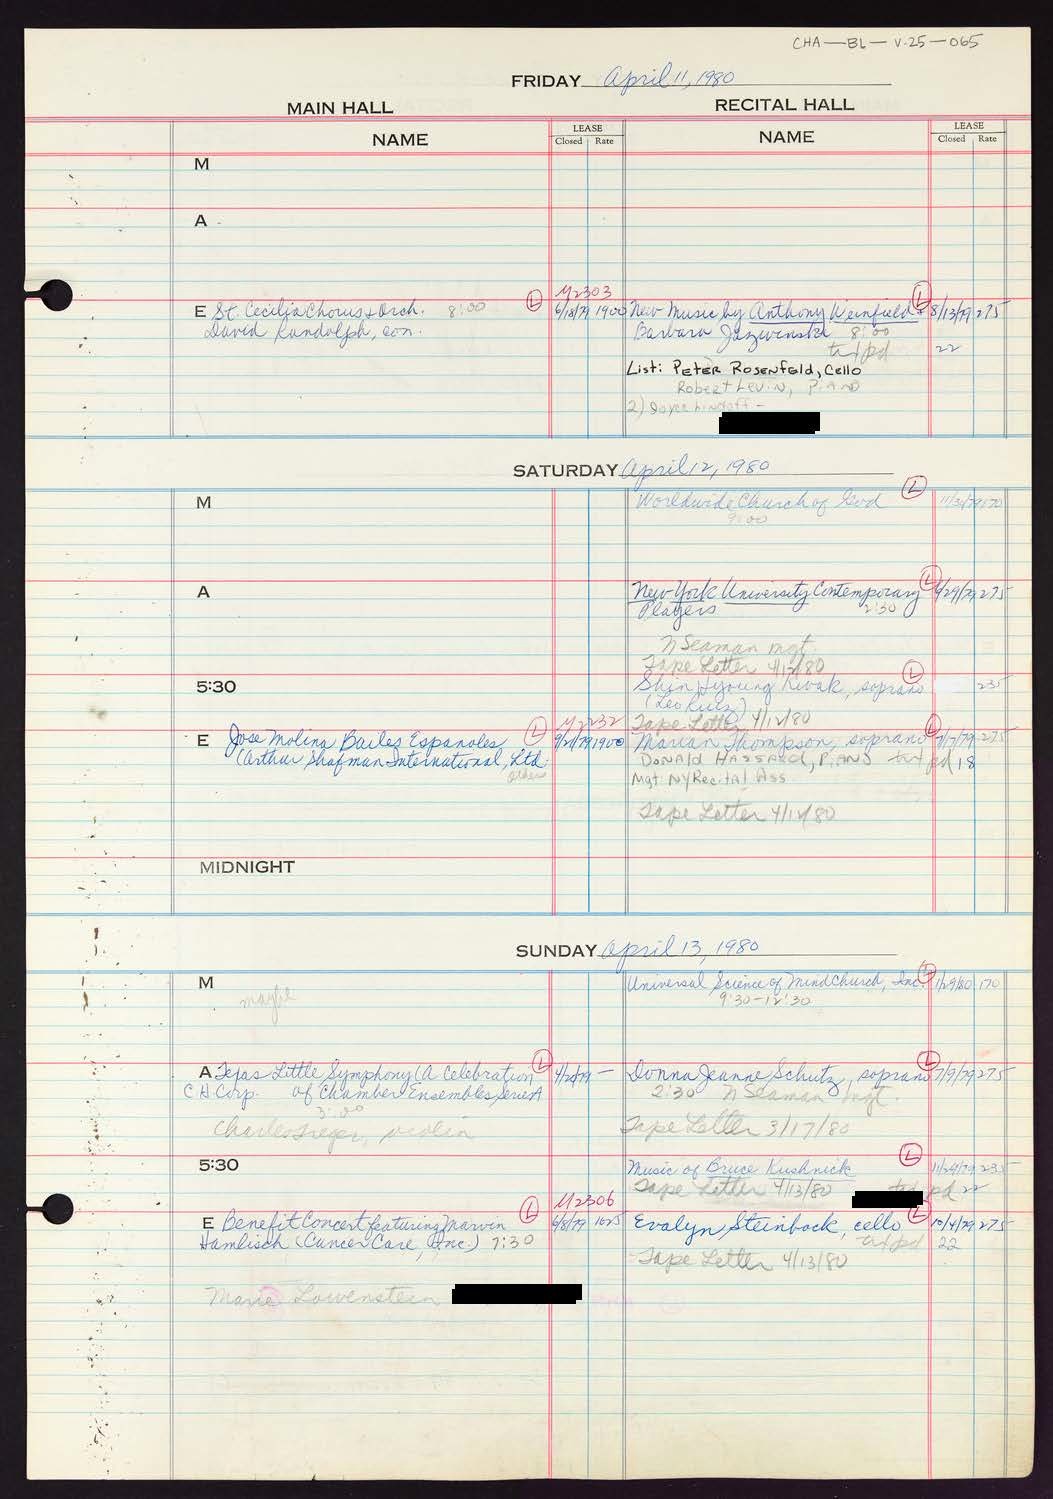 CHA-BL-V.25-065
FRIDAY April 11, 1980
MAIN HALL
RECITAL HALL
NAME
LEASE
Closed Rate
NAME
LEASE
Closed Rate
M
A
M2303
E St. Cecilia Chorus & Orch. 8:00 (L) 6/18/79 1900
David Randolph, con.
New Music by Anthony Weinfield & (L) 8/13/79 275
Barbara Jazwinski 8:00
txt pd 22
List: Peter Rosenfeld, Cello
Robert Levin, Piano
2) Joyce
SATURDAY April 12, 1980
M
Worldwide Church of God (L) 11/3/79 170
9:00
A
New York University Contemporary (L) 275
Players 2:30
N Seaman mgt.
Tape Letter 4/12/80
5:30
Shin Hyoung Kwak, soprano (L) 235
(Leo Rutz)
Tape Letter 4/12/80
M2232
E Jose Molina Bailes Espanoles (L) 1900
(Arthur Shafman International, Ltd.
others
Marian Thompson, soprano (L) 275
Donald Hassard, Piano txt pd 18
Mgt: NY Recital Ass
Tape Letter 4/12/80
MIDNIGHT
SUNDAY April 13, 1980
M
maybe
Universal Science of Mind Church, Inc. (L) 1/29/80 170
9:30-12:30
A Texas Little Symphony (A Celebration (L) –
C.H. Corp. of Chamber Ensembles, Series A
3:00
Charles Treger, violin
Donna Jeanne Schutz, soprano (L) 7/9/79 275
2:30 N Seaman mgt.
Tape Letter 3/17/80
5:30
Music of Bruce Kushnick (L) 11/29/79 235
Tape Letter 4/13/80 txt pd 22
M2306
E Benefit Concert featuring Marvin (L) 6/8/79 1625
Hamlisch (Cancer Care, Inc.) 7:30
Marie Lowenstein
Evalyn Steinbock, cello (L) 10/4/79 275
txt pd 22
Tape Letter 4/13/80